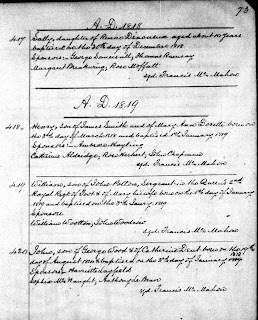 73
A. D. 1818
417
Sally, daughter of Bruno aged about 10 years
baptised on the 20th day of December 1818
Sponsors - George Somerville, Thomas Ramsay
Margaret Rose Moffatt
sgd. Francis Mc Mahon
A. D. 1819
418
Henry, son of James Smith and of Mary Ann Dorette born on
the 3rd day of March 1818 and baptised 1st January 1819
Sponsors - Ambrose Hayling
Catherine Aldridge, Rose Herbert, John Chapman
sgd. Francis Mc Mahon
419
William, son of John Potton, Sergeant in the Queen's 2nd
Royal Regt of Foot & of Mary his wife born on the 1st day of January
1819 and baptised on the 3rd January 1819
Sponsors
William Wootton, John Woodison
sgd. Francis Mc Mahon
420
John, son of George Wood & of Catherine Dent born on the 19th
day of August 1818 & baptised on the 3rd day of January 1819
Sponsors Harriett
Sophia Mc Naught, Anthony
sgd. Francis Mc Mahon